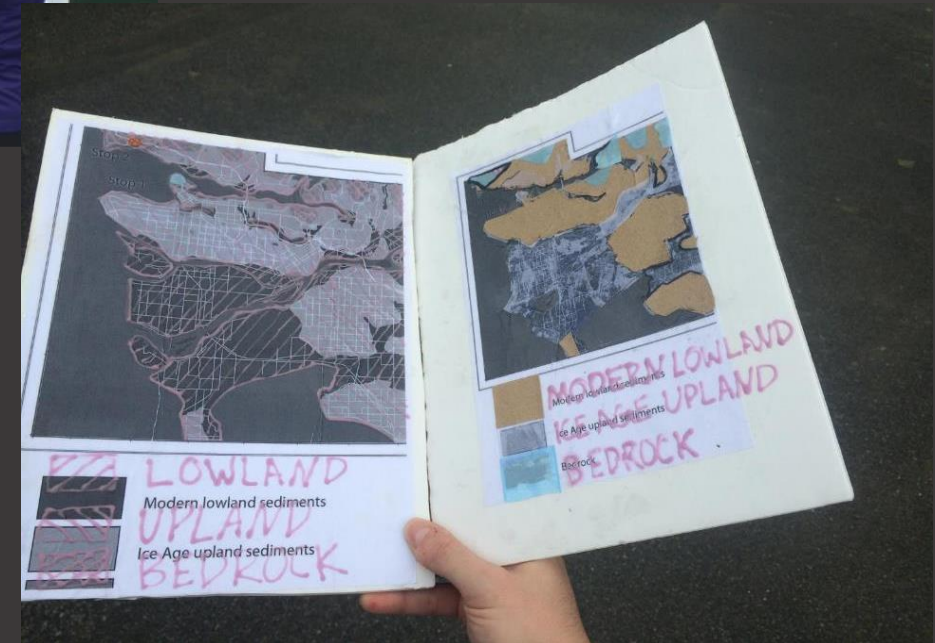 Stop 2
Stop 1
LOWLAND
Modern lowland sediments
UPLAND
Ice Age upland sediments
BEDROCK
MODERN LOWLAND
Modern lowland sediments
ICE AGE UPLAND
Ice Age upland sediments
BEDROCK
Bedrock